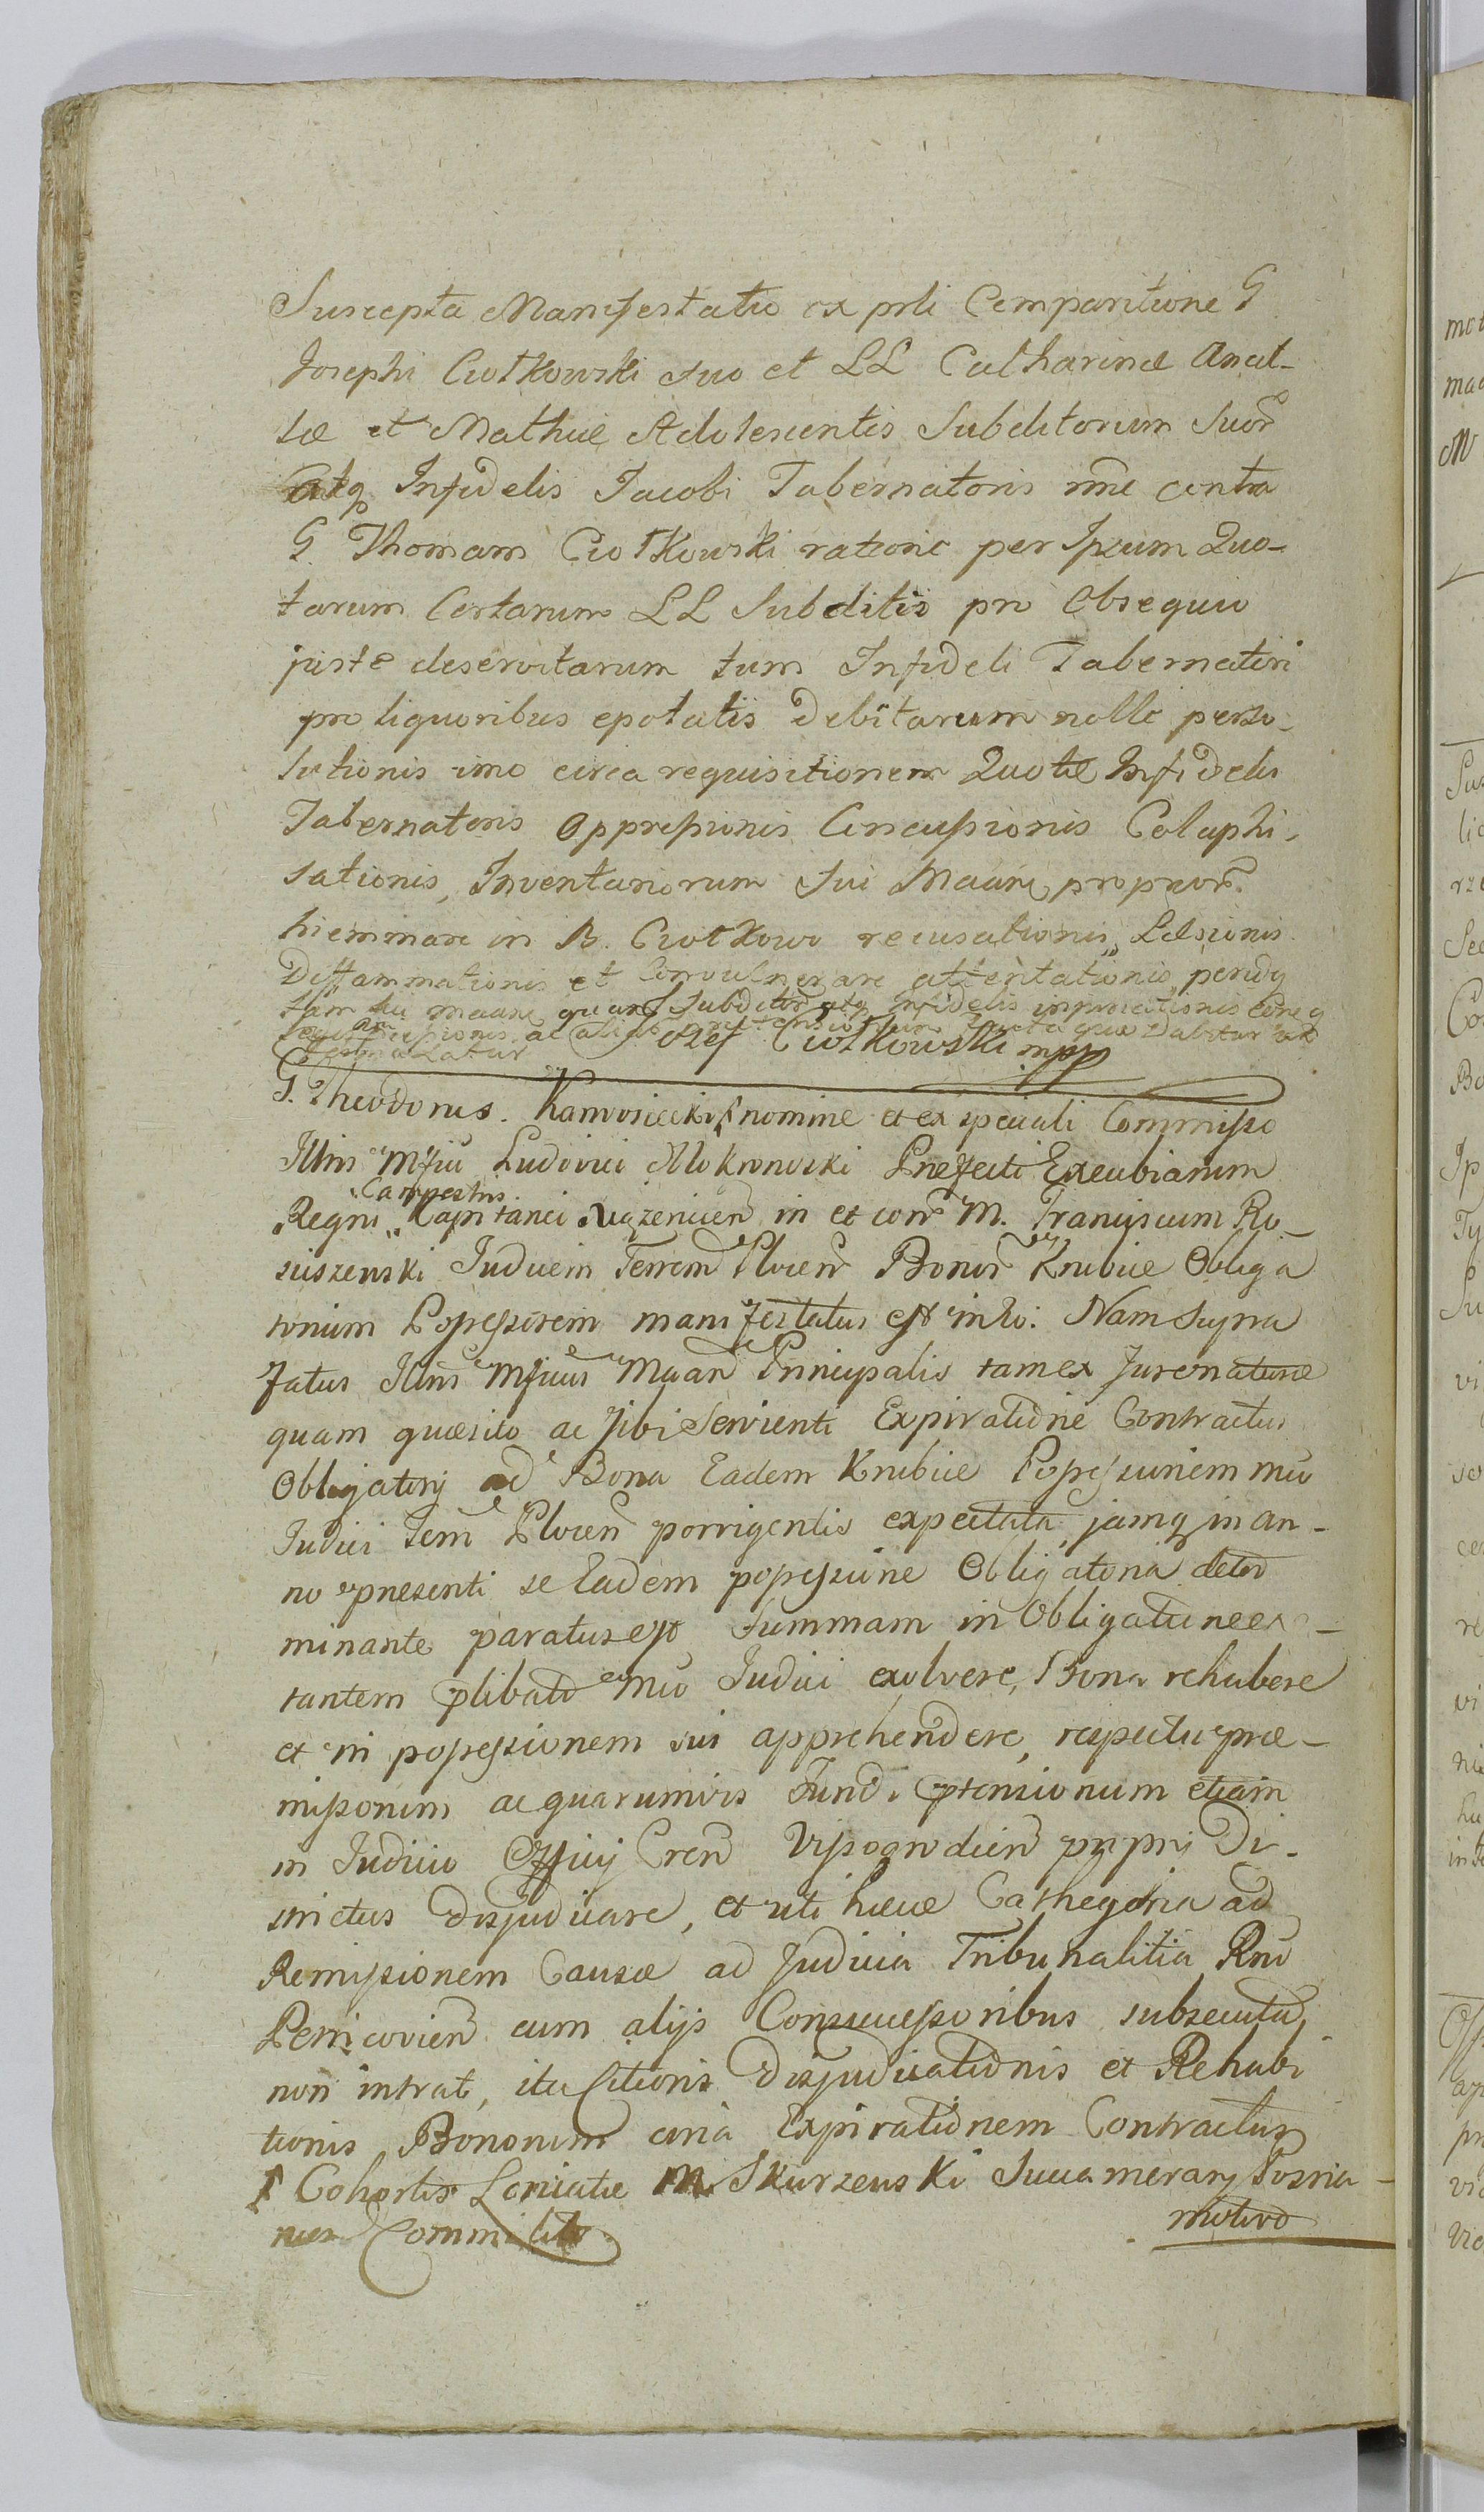 Suscepta Manifestatio ex prti Comparitione G
Josephi Ciołkowski suo et LL Catharinæ Ancil-
læ et Mathiæ Adolescentis Subditorum Suor
Atq Infidelis Jacobi Tabernatoris nne contra
G. Thomam Ciołkowski ratione per Ipsum Quo-
tarum Certarum LL Subditis pro Obsequio
juste deservitarum tum Infideli Tabernatori
pro liquoribus epotatis Debitarum nolle perso-
lutionis imo circa requisitionem Quotæ Infidelis
Tabernatoris Oppressionis Concussionis Colaphi-
sationis, Inventariorum sui Maan, proprior
hiemmare in B. Ciołkowo recusationis, Læsionis
Diffammationis et Convulnerare attentationis, periculy
tam sui maan, quam Subditor atq Infidelis
ac Dabitur
Jozef Ciołkowski mpp
G. Theodorus Kanvosiecki nomine et ex speciali Commisso
Illris Mfici Ludovici Mokronoski Præfecti Excubiarum
Campestris
Regni Capitanei in et con M. Franciscum Ro-
sciszewski Judicem Terrem Plocen Bonor Krubice Obliga
torium Possessorem manifestatus est in to: Nam supra
fatus Illris Mficus Maan Principalis tam ex Jure naturæ
quam quæsito ac sibi Servienti Expiratione Contractus
Obligatorij ad Bona Eadem Krubice Possessionem mco
Judici Terri Plocen porrigentis expectata, jamq in an-
no præsenti se Eadem possessione Obligatoria deter
minante, paratus est Summam in Obligatione ex-
tantem plibato Mco Judici exolvere, Bona rehabere
et in possessionem sui apprehendere, respectu præ-
missorum ac quarumvis Fundi ptensionum etiam
in Judicio Officij Cren Vissogrodien pprij Di-
strictus disjudicare, et uti hæcce Cathegoria ad
Remissionem Causæ ad Judicia Tribunalitia Rni
Petricovien cum alijs Consuccessoribus subsecutam
non intrat, ita Citionis Disjudicationis et Rehabi
tionis Bonorum circa Expirationem Contractus
Cohortis Loricatæ M. Skurzewski Succamerarij Posna-
nien Commilito
motivo